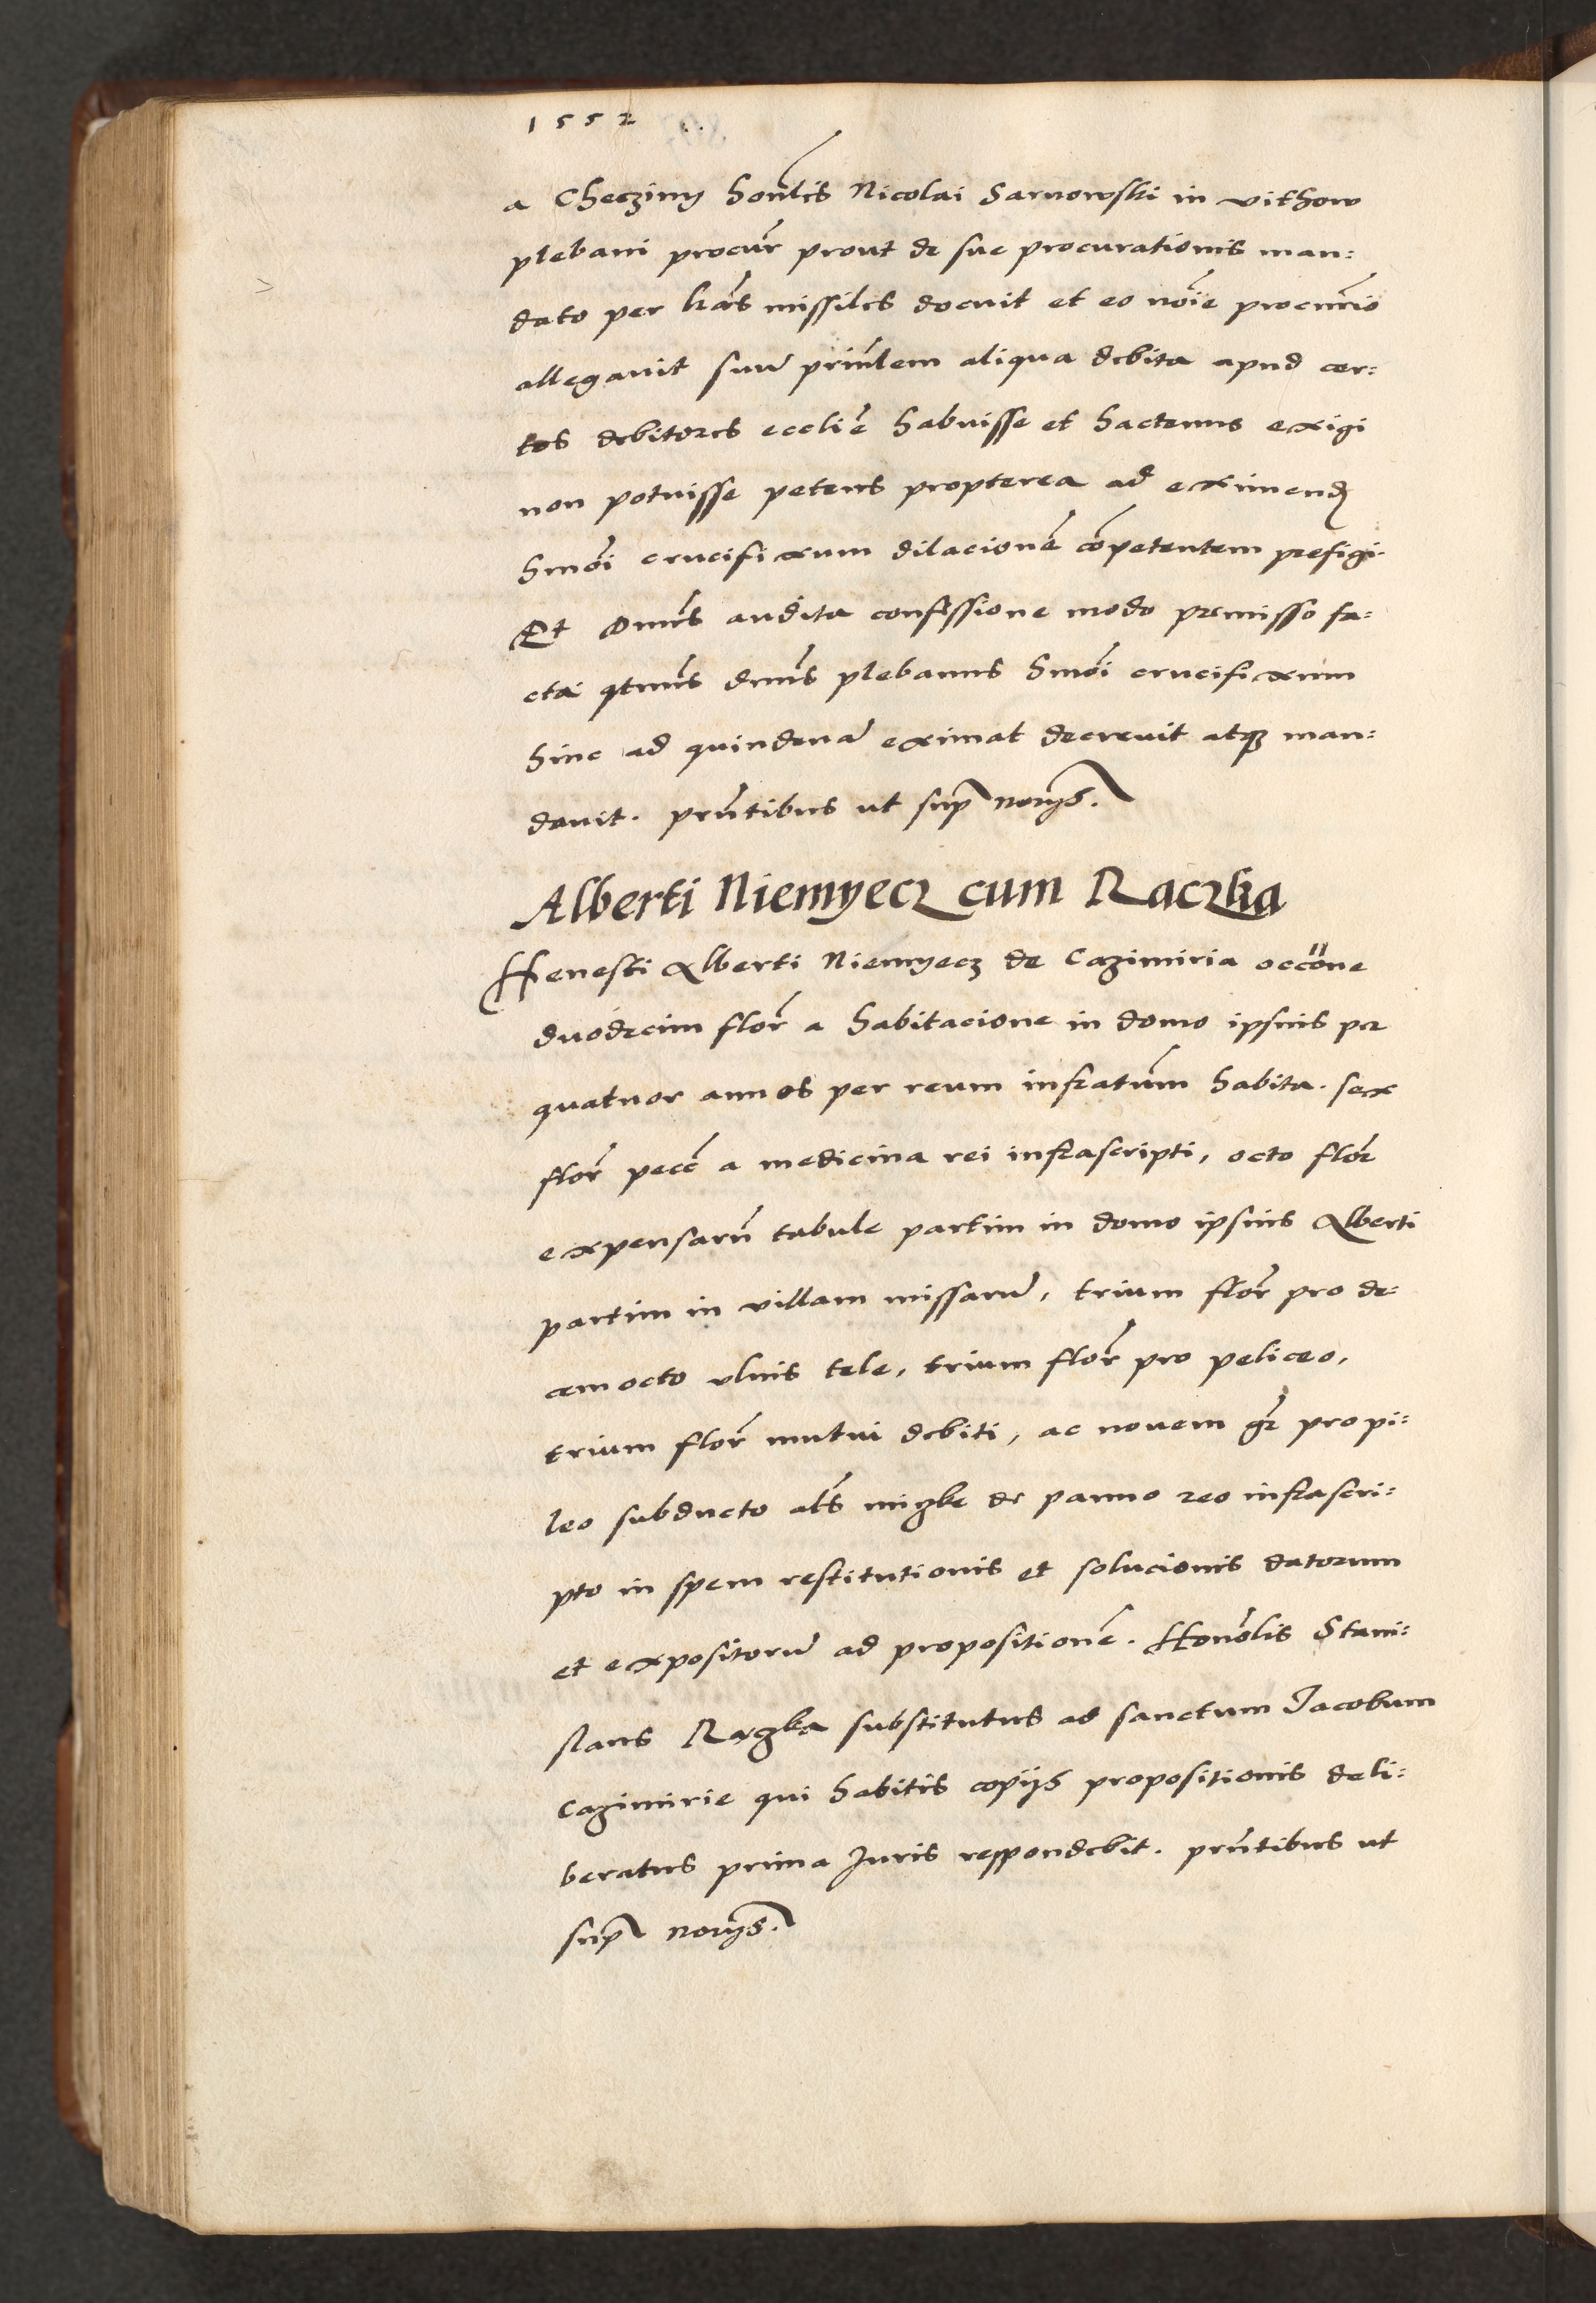 1552
a Checziny honlis Nicolai Sarnowski in vithow
plebani procur prout de sue procurationis man:
dato per lras missiles docuit et eo noie procurio
allegavit suu prinlem aliqua debita apud cer:
tos debitores ecclie habuisse et hactenus exigi
non potuisse petens propterea ad eximend
hmoi crucifixum dilacione competentem prefigi.
Et Dnus audita confessione modo premisso fa:
cta qtnus dnus plebanus hmoi crucifixum
hinc ad quindena eximat decrevit atq man:
davit. pntibus ut sup norijs.
Alberti Niemyecz cum Raczka
Henesti Alberti Niemyecz de Cazimiria occone
duodecim flor a habitacione in domo ipsius per
quatuor annos per reum infratum habita. sex
flor pecc a medicina rei infrascripti, octo flor
expensaru tabule partim in domo ipsius Alberti
partim in villam missaru, trium flor pro de:
cem octo ulnis tele, trium flor pro peliceo,
trium flor mutui debiti, ac novem gr pro pi:
leo subducto als miczke de panno reo infrascri:
pto in spem restitutionis et solucionis datorum
et expositoru ad propositione. Honolis Stani:
slaus Raczka substitutus ad sanctum Jacobum
Cazimirie qui habitis copijs propositionis deli:
beratus prima Juris respondebit. pntibus ut
sup norijs.